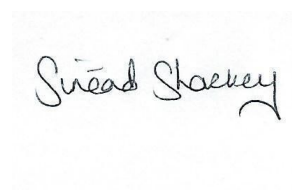 Sinéad Sharkey